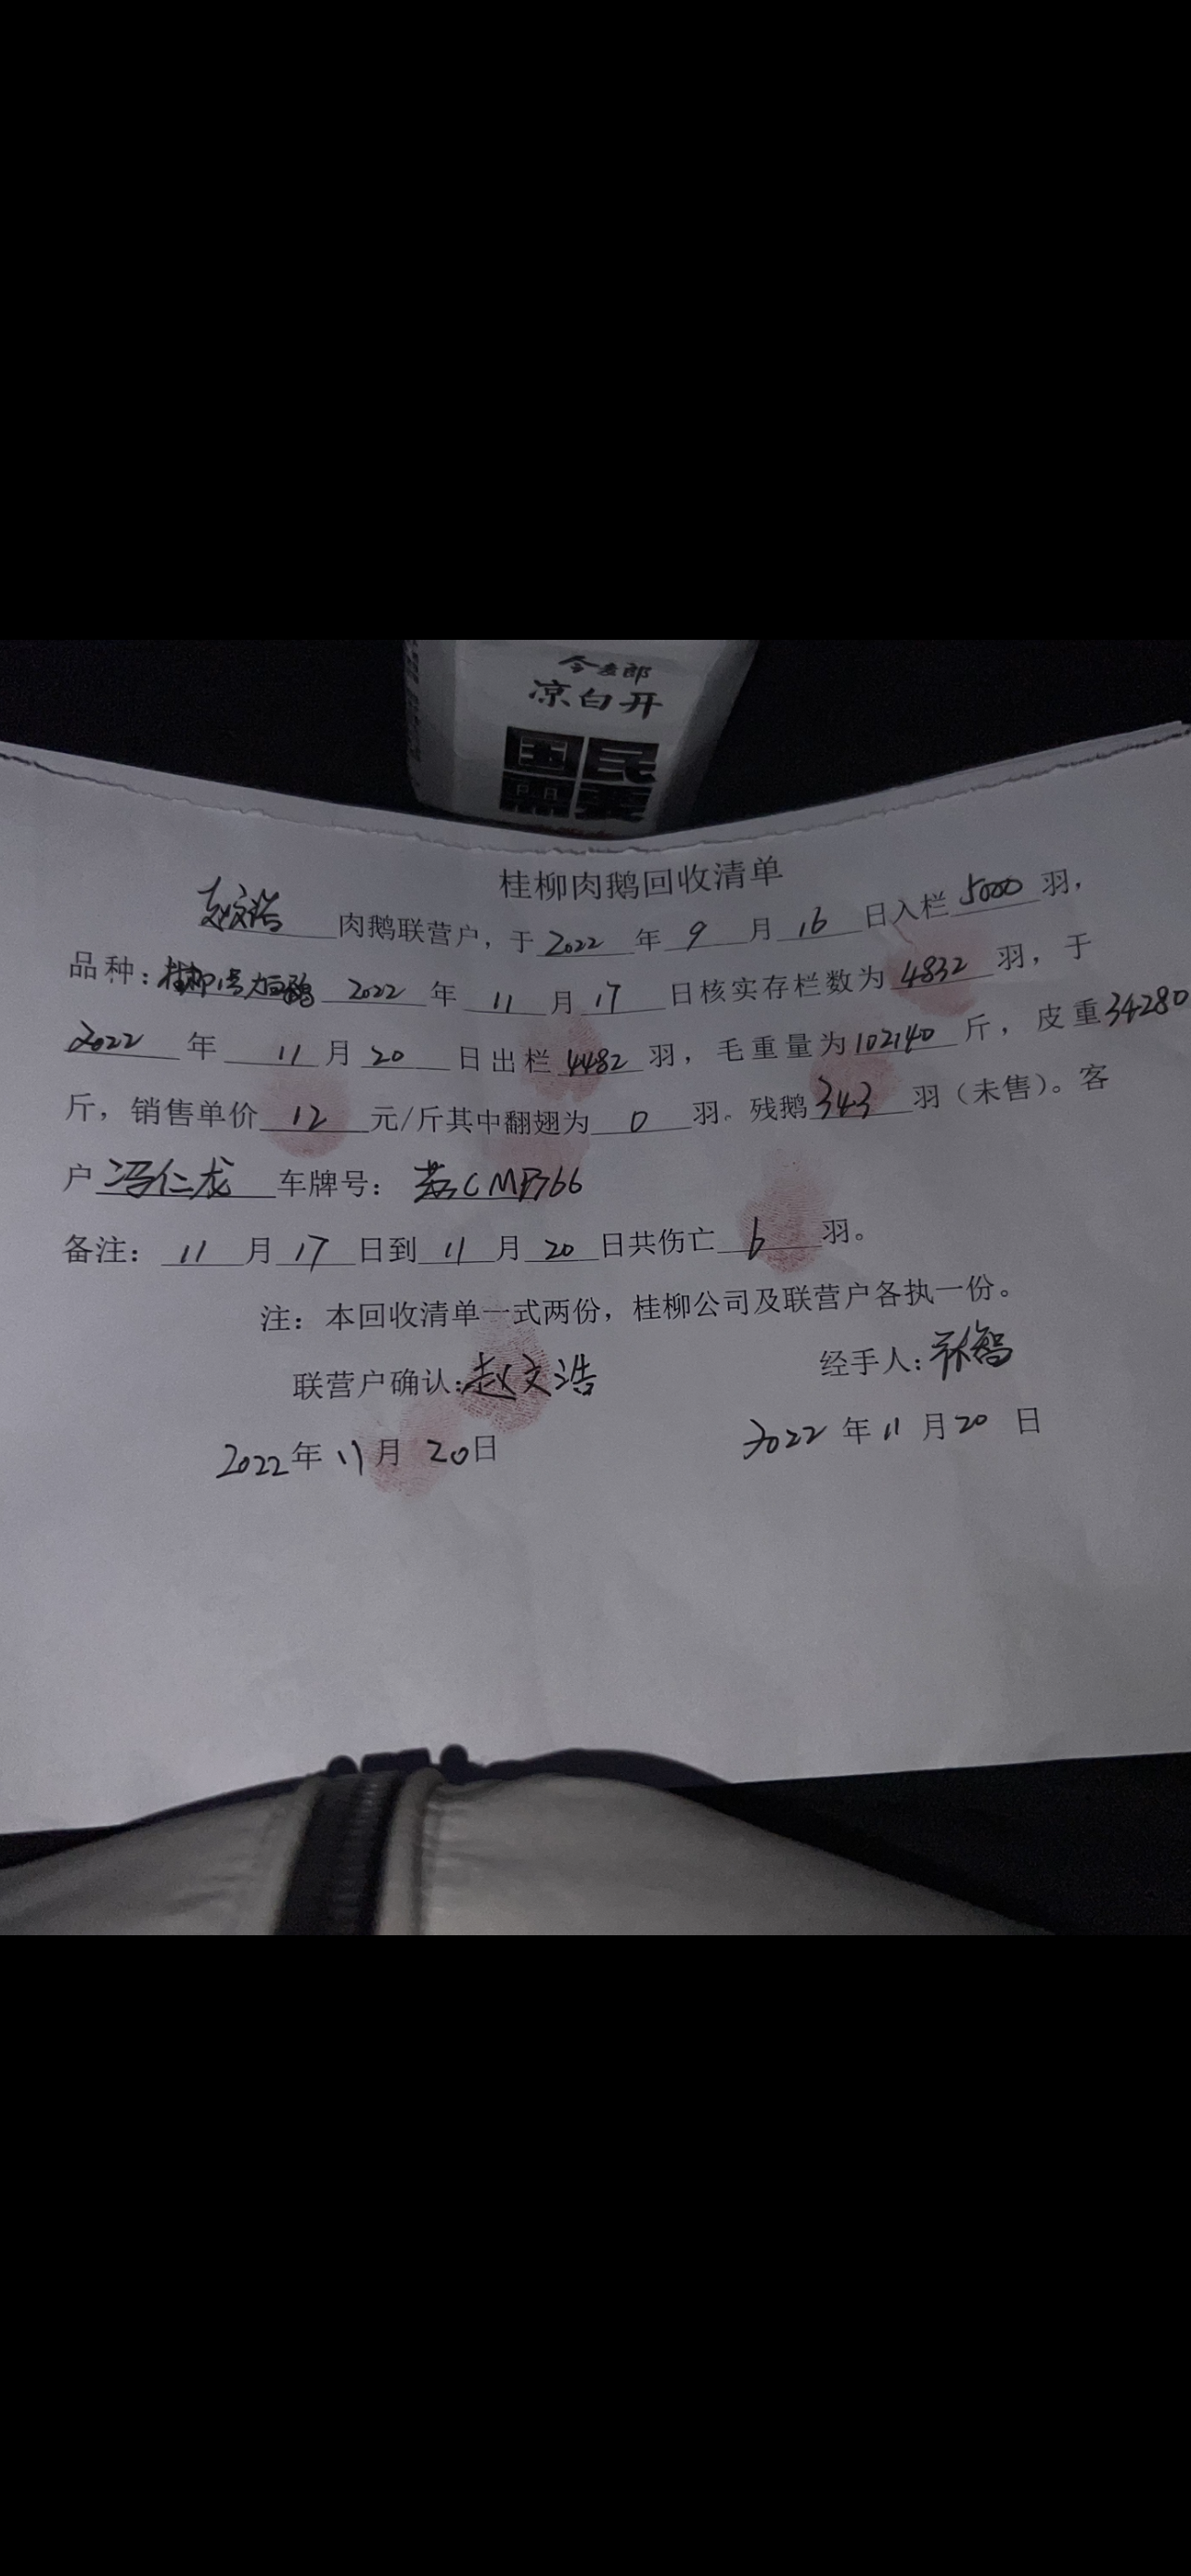 今麦郎
凉白开
国民
桂柳肉鹅回收清单
赵文浩 肉鹅联营户，于 2022 年 9 月 16 日入栏 5000 羽，
品种：桂柳1号大白鹅 2022 年 11 月 17 日核实存栏数为 4832 羽，于
2022 年 11 月 20 日出栏 4482 羽，毛重量为 102140 斤，皮重 34280
斤，销售单价 12 元/斤其中翻翅为 0 羽。残鹅 343 羽（未售）。客
户 冯仁龙 车牌号： 苏CMB766
备注： 11 月 17 日到 11 月 20 日共伤亡 6 羽。
注：本回收清单一式两份，桂柳公司及联营户各执一份。
联营户确认：赵文浩 经手人：
2022年 11月 20日 2022 年 11 月 20 日